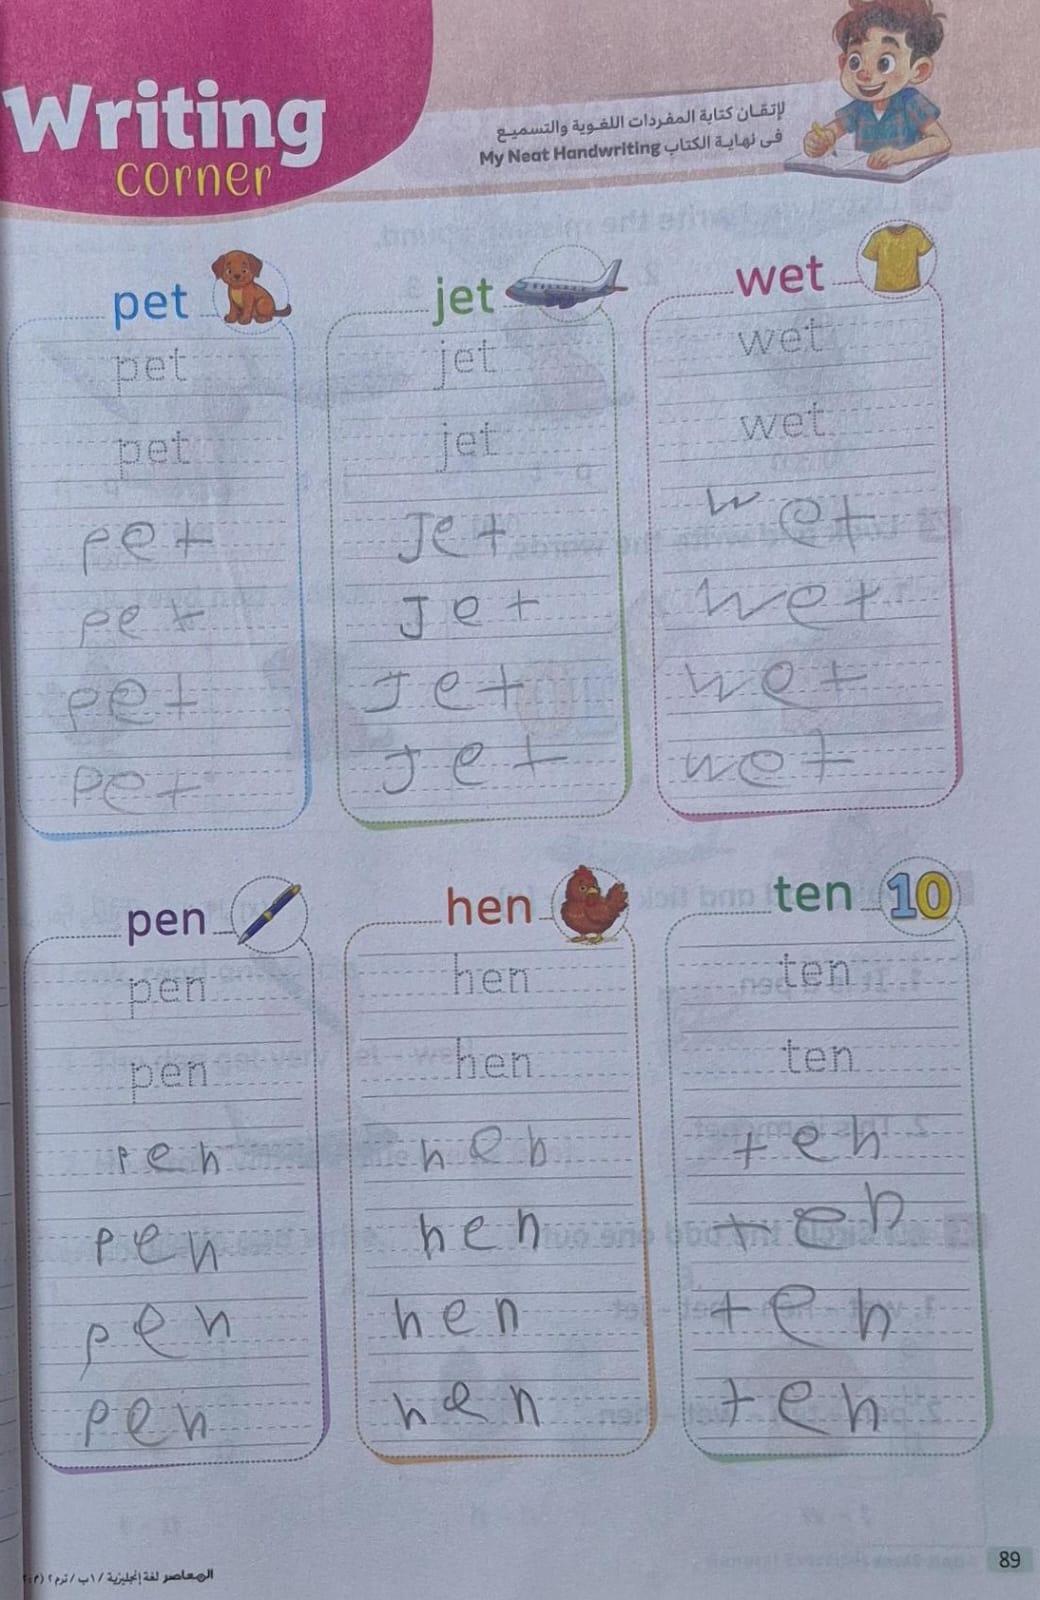 Writing
corner
لإتقـان كتابة المفردات اللغـوية والتسميـع
فى نهايـة الكتاب My Neat Handwriting
pet
pet
pet
pet
pet
pet
pet
jet
jet
jet
Jet
Jet
Jet
Jet
wet
wet
wet
wet
wet
wet
wet
pen
pen
pen
pen
pen
pen
pen
hen
hen
hen
hen
hen
hen
hen
ten
10
ten
ten
ten
ten
ten
ten
89